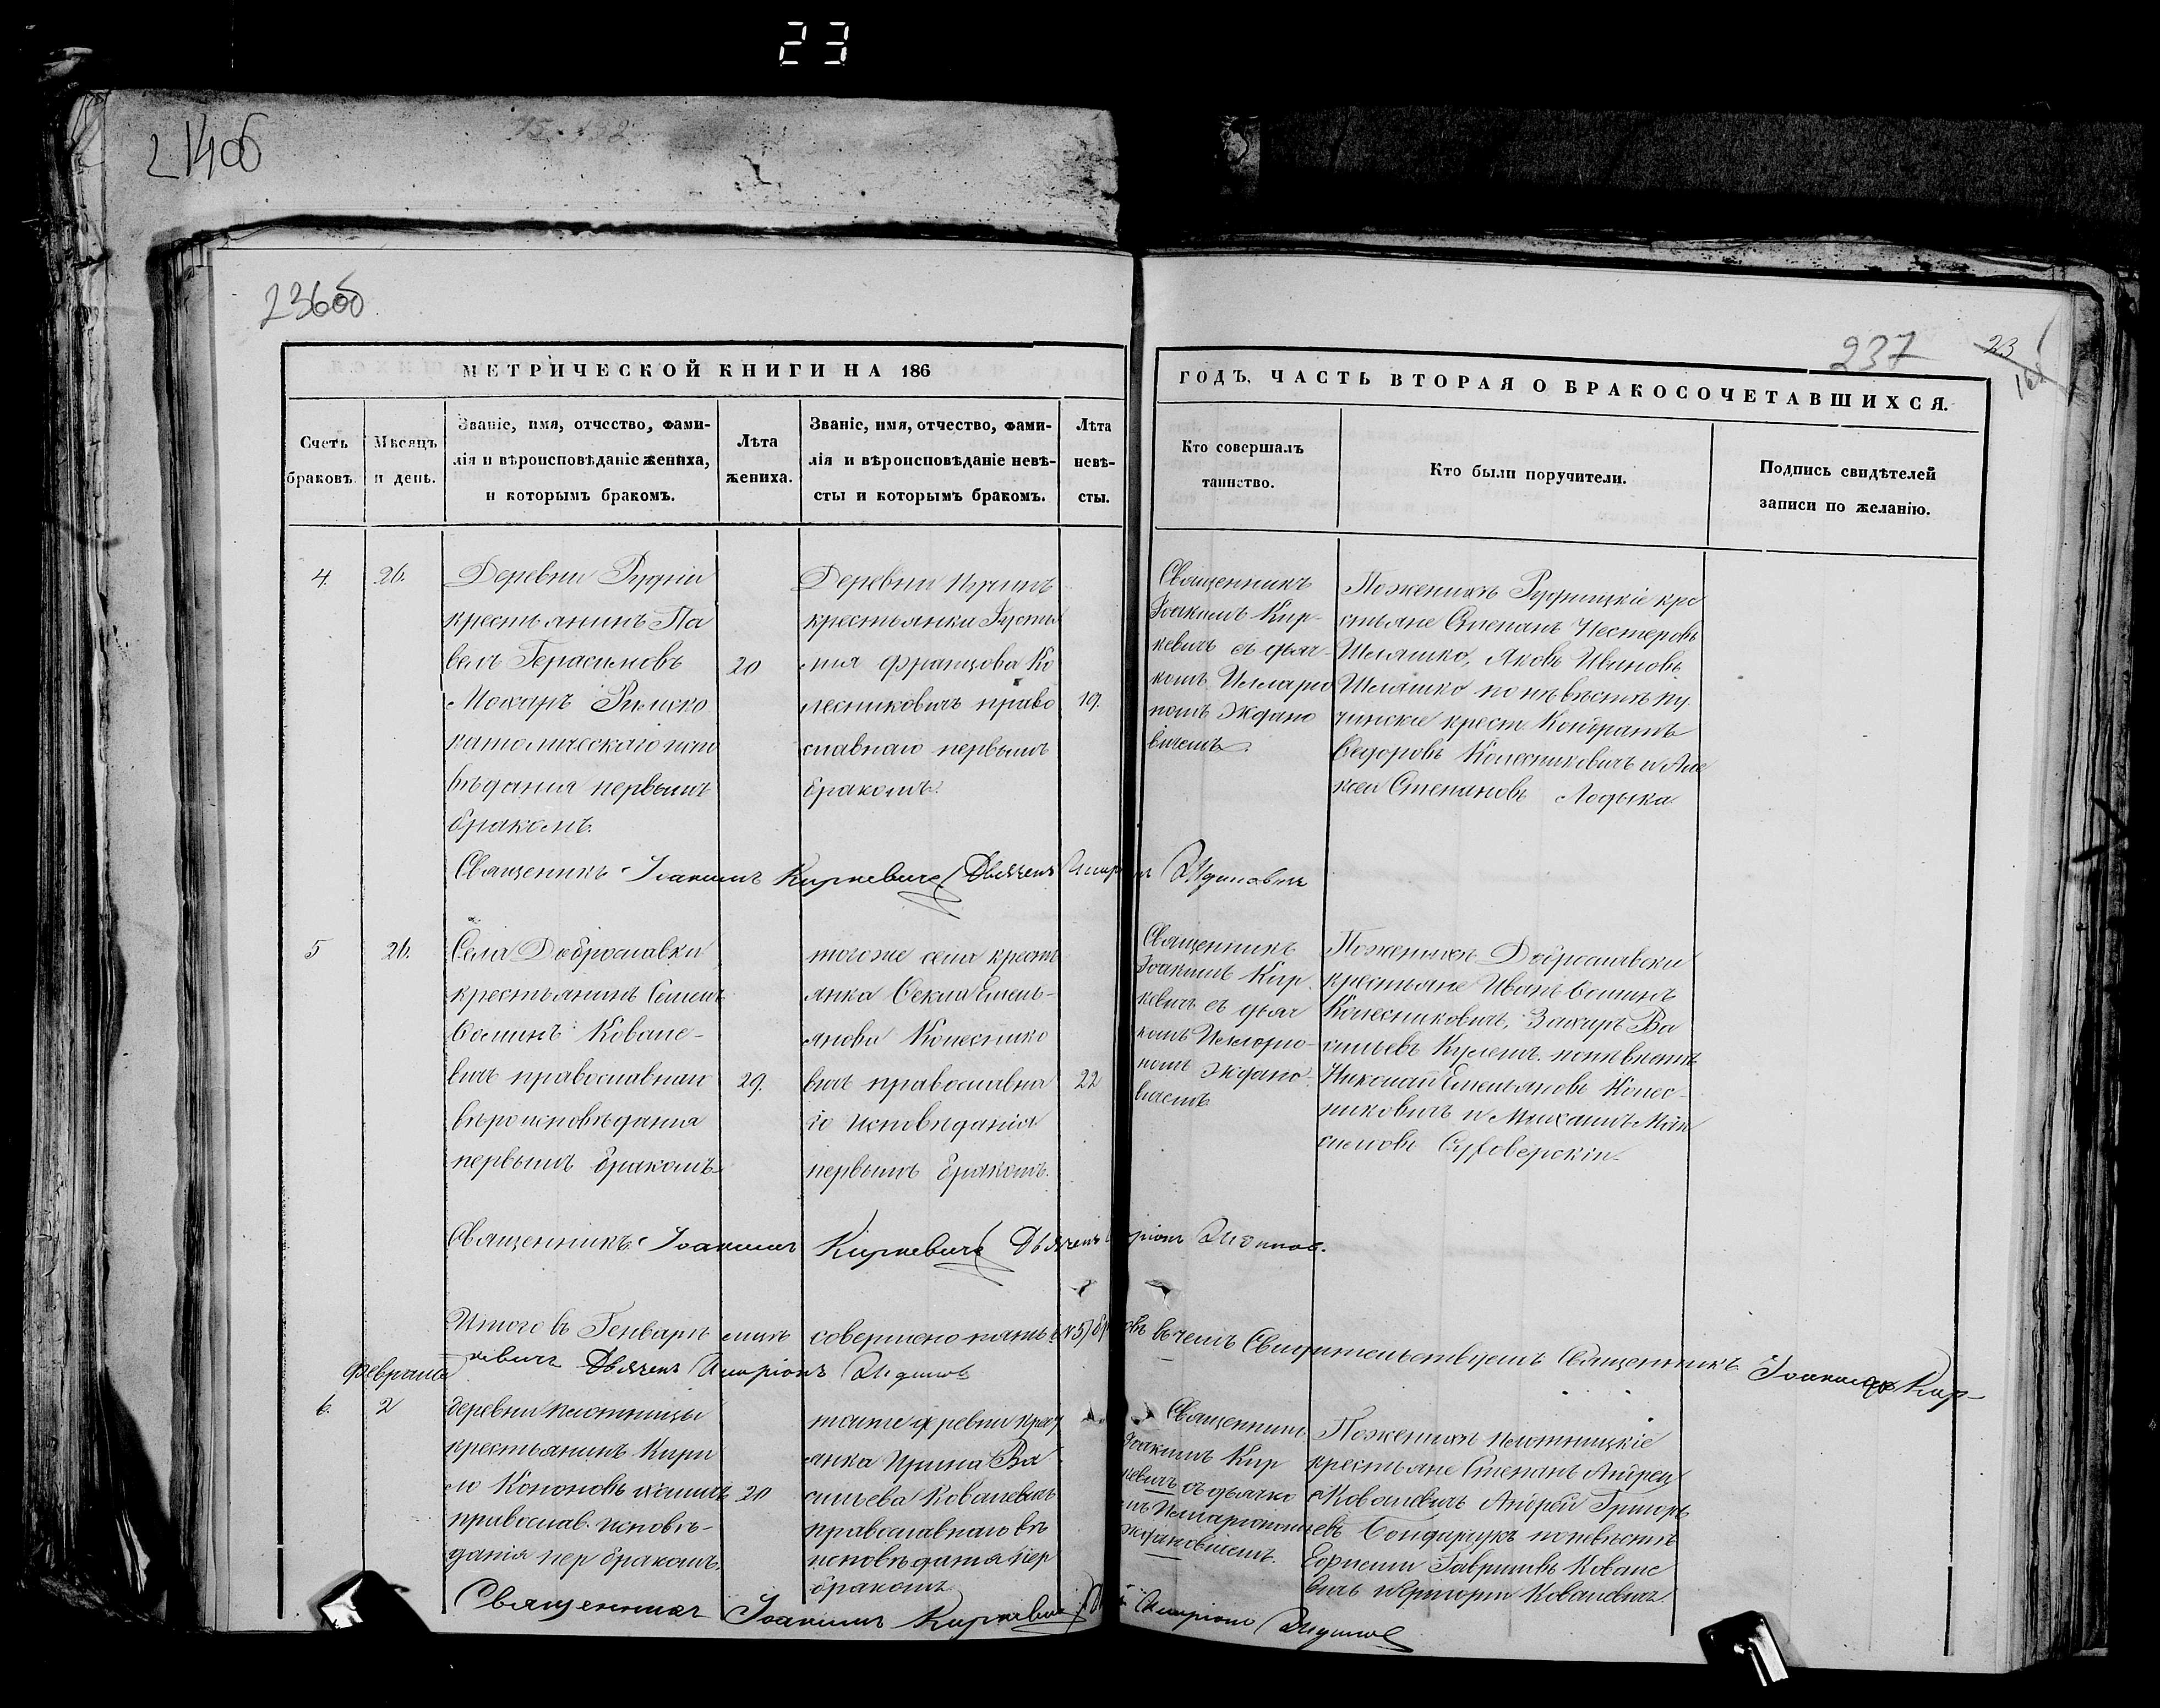 23
21406
236об
237
23
МЕТРИЧЕСКОЙ КНИГИ НА 186
ГОДЪ, ЧАСТЬ ВТОРАЯ О БРАКОСОЧЕТАВШИХСЯ.
Счетъ браковъ.
Мѣсяцъ и день.
Званіе, имя, отчество, фами-
лія и вѣроисповѣданіе жениха,
и которымъ бракомъ.
Лѣта жениха.
Званіе, имя, отчество, фами-
лія и вѣроисповѣданіе невѣ-
сты и которымъ бракомъ.
Лѣта невѣ-
сты.
Кто совершалъ
таинство.
Кто были поручители.
Подпись свидѣтелей
записи по желанію.
4.
26.
Деревни
крестьянинъ Па
велъ Герасимовъ
Мохаръ Римско
католическаго испо
вѣданія первымъ
бракомъ.
20
Деревни
крестьянка
Францова Ко
лесниковичъ право
славнаго первымъ
бракомъ.
19.
Священникъ
Іоакимъ Кир-
кевичъ съ дьяч-
комъ Илларіо
номъ Ждано
вичемъ.
По женихѣ кре
стьяне Степанъ Нестеровъ
Шляшко, Яковъ Ивановъ
Шляшко по невѣстѣ
крест. Кондратъ
Федоровъ Колесниковичъ и Але
ксей Степановъ Лодыка
Священникъ Іоакимъ Киркевичъ Дьячекъ
5
26.
Села Доброславки
крестьянинъ Семенъ
Ѳоминъ Ковале-
вичъ православнаго
вѣроисповѣданія
первымъ бракомъ
29.
тогоже села кресть
янка Ѳекла Емель-
янова Колеснико
вичъ православна
го исповѣданія
первымъ бракомъ.
22
Священникъ
Іоакимъ Кир-
кевичъ съ дьяч
комъ Илларіо-
номъ Ждано-
вичемъ
По женихѣ Доброславски
крестьяне Иванъ Ѳоминъ
Колесниковичъ, Захаръ Ва
сильевъ по невѣстѣ
Николай Емельяновъ Колес-
никовичъ и Михаилъ Мак
симовъ
Священникъ Іоакимъ Киркевичъ Дьячекъ
Итого въ Генварѣ мцѣ совершено пять (№ 5) въ чемъ Свидительствуемъ Священникъ Іоакимъ Кир-
кевичъ Дьячекъ
Февраля
6.
2
деревни
крестьянинъ Кири
ло Кононовъ
православ. исповѣ-
данія пер бракомъ.
20
тойже деревни крест
янка Ирина Ва
сильева Ковалевичъ
православнаго вѣ
исповѣданія пер
бракомъ
Священникъ
Іоакимъ Кир
кевичъ съ дьячко
мъ Илларіономъ
Ждановичемъ.
По женихѣ
крестьяне Степанъ Андрея
Ковалевичъ Андрей Григорь
евъ Бондарчукъ по невѣстѣ
Гавриловъ Ковале
вичъ и Григорій Ковалевичъ.
Священникъ Іоакимъ Киркевичъ